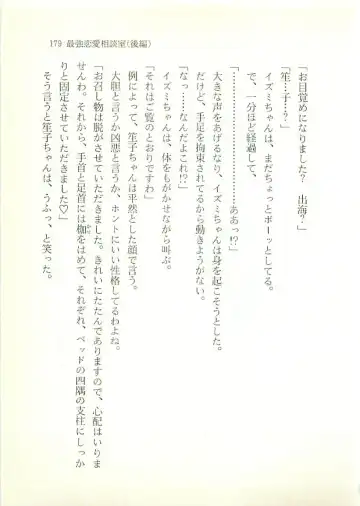 179 最強恋愛相談室(後編)
「お目覚めになりました? 出海?」
「笙…子…?」
イズミちゃんは、まだちょっとボーッとしてる。
で、一分ほど経過して、
「…………………………ああっ!?」
大きな声をあげるなり、イズミちゃんは身を起こそうとした。
だけど、手足を拘束されてるから動きようがない。
「なっ……なんだよこれ!?」
イズミちゃんは、体をもがかせながら叫ぶ。
「それはご覧のとおりですわ」
例によって、笙子ちゃんは平然とした顔で言う。
大胆と言うか凶悪と言うか、ホントにいい性格してるわよね。
「お召し物は脱がさせていただきました。きれいにたたんでありますので、心配はいりま
せんわ。それから、手首と足首には枷をはめて、それぞれ、ベッドの四隅の支柱にしっか
りと固定させていただきました♡」
そう言うと笙子ちゃんは、うふっ、と笑った。